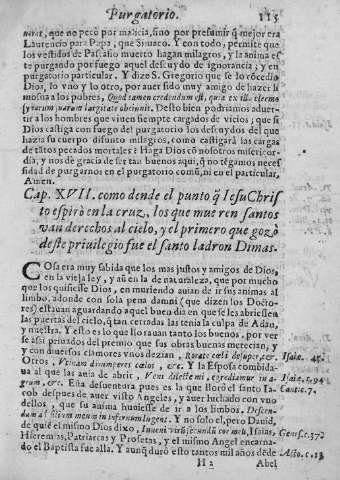 Purgatorio. 115
norar, que no pecò por malicia, sino por presumir q̃ mejor era
Laurencio para Papa, que Simaco. Y con todo, permite que
los vestidos de Pascasio muerto hagan milagros, y la anima es
te purgando por fuego aquel descuydo de ignorancia, y en
purgatorio particular. Y dize S. Gregorio que se lo cõcedio
Dios, lo vno y lo otro, por auer sido muy amigo de hazer li
mosna a los pobres, Quod tamen credendum est, quia ex illa elemo
synarum suarum largitate obtinuit. Desto bien podriamos aduer-
tir a los hombres que vinen siempte cargados de vicios; que si
Dios castiga con fuego del purgatorio los descuydos del que
hazia su cuerpo difunto milagros, como castigarà las cargas
de tãtos pecados mortales? Haga Dios cõ nosotros misericor-
dia, y nos dè gracia de ser tan buenos aqui, q̃ no tẽgamos neces
sidad de purgarnos en el purgatorio comũ, ni en el particular,
Amen.
Cap. XVII. como dende el punto q̃ Iesu Chris
to espirò en la cruz, los que mueren santos
van derechos al cielo, y el primero que gozò
deste priuilegio fue el santo ladron Dimas.
COsa era muy sabida que los mas justos y amigos de Dios,
en la vieja ley, y aũ en la de naturaleza, que por mucho
que los quisiesse Dios, en muriendo auian de ir sus animas al
limbo, adonde con sola pena damni (que dizen los Docto-
res) estauan aguardando aquel buen dia en que se les abriessen
las puertas del cielo, q̃ tan cerradas las tenia la culpa de Adan,
y nuestra. Y esto es lo que llorauan tanto los buenos, por ver
se assi priuados del premio que sus obras buenas merecian, y
y con diuersos clamores vnos dezian, Rorate cœli desuper, &c. Isaiæ. 45.
Otros, Vtinam dirumperes cœlos, &c. Y la Esposa combida-
ua al que las auia de abrir, Veni dilecte mi, egrediamur in a- Isaiæ. c. 94
grum, &c. Esta desuentura pues es la que llorò el santo Ia- Cantic. 7.
cob despues de auer visto Angeles, y auer luchado con vno
dellos, que su anima huuiesse de ir a los limbos, Descen-
dam ad filium meum in infernum lugens. Y no solo el, pero Dauid,
de quiẽ el mismo Dios dixo, Inueni virũ secundũ cor meũ, Isaias, Genes. c. 37.
Hieremias, Patriarcas y Profetas, y el mismo Angel encarna-
do el Baptista fue alla. Y aunq̃ durò esto tantos mil años dẽde Acto. c. 13
H 2 Abel